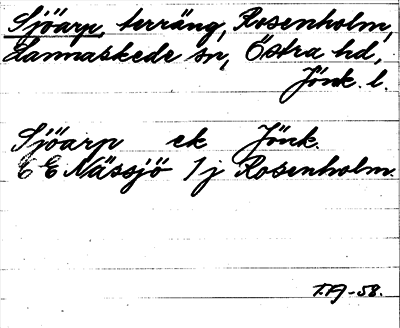 Sjöarp, terräng, Rosenholm,
Lannaskede sn, Östra hd,
Jönk. l.
Sjöarp ek Jönk.
E E Nässjö 1j Rosenholm.
T.A -58.